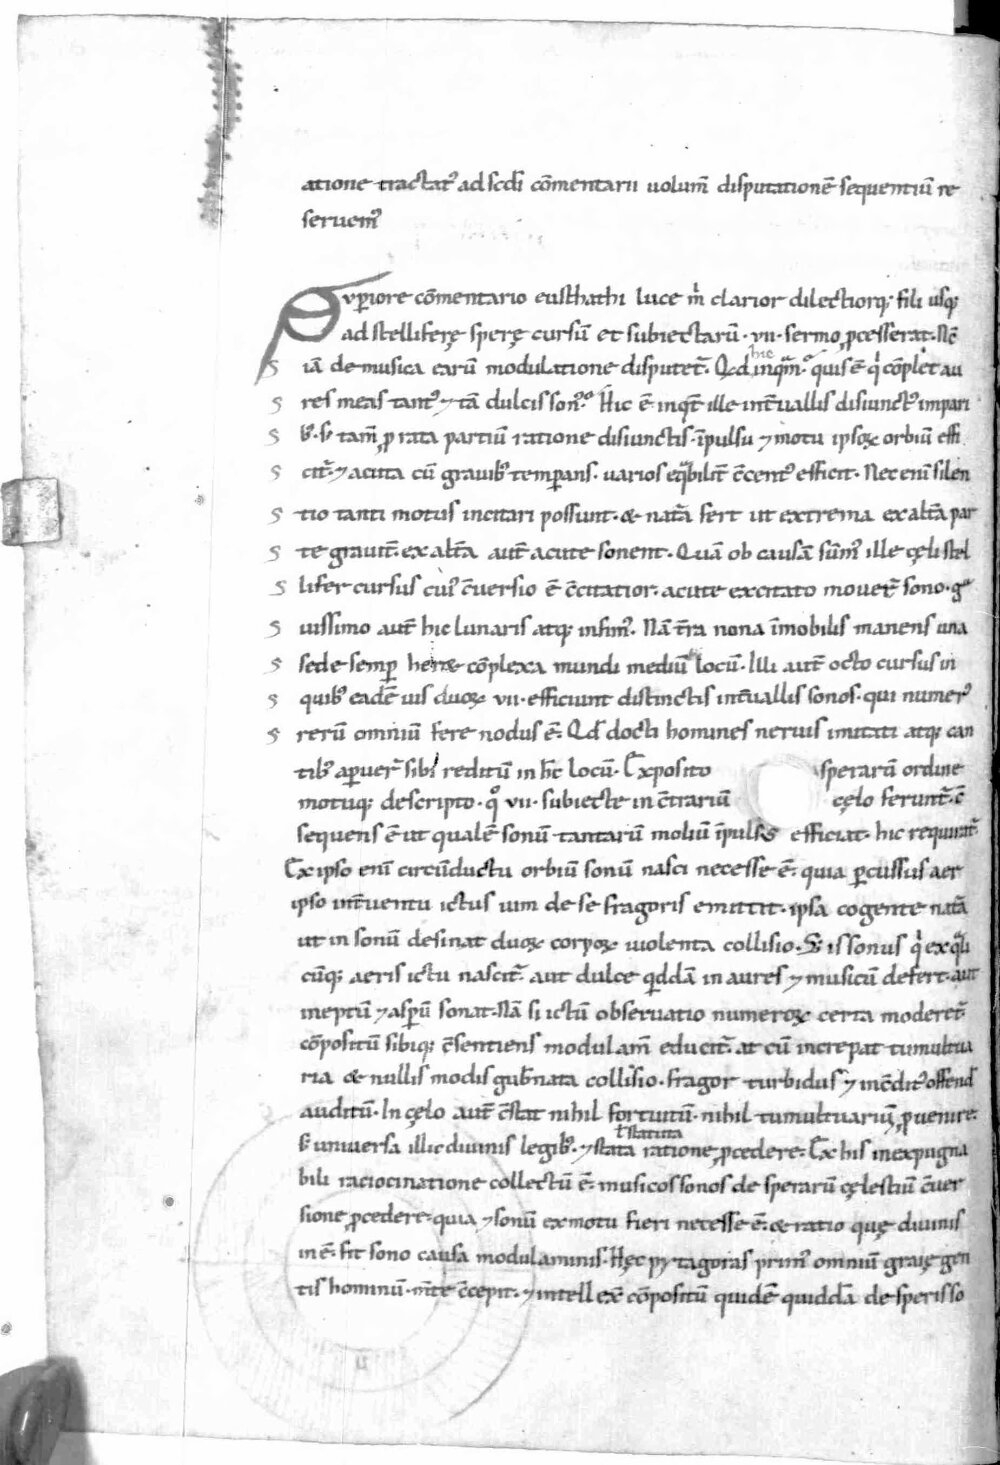 atione tractat᷒ ad scđi cōmentarii uolum̄ disputationē sequentiū re
seruem᷒
Sup̱iore cōmentario eusthathi luce m̄ clarior dilectiorq; fili usq;
ad stelliferę sperę cursū et subiectarū · vii · sermo ꝓcesserat · Nc̄
iā de musica earū modulatione disputet᷒ · Qđ hic inqm̄ · quis ē q̇ cōplet au
res meas tant᷒ ⁊ tā dulcis son᷒ · Hic ē inqt̄ ille int̄uallis disiunct᷒ impari
b᷒ · s; tam̄ ꝓ rata partiū ratione disiunctis · īpulsu ⁊ motu ipsoꝝ orbiū effi
cit᷒ · ⁊ acuta cū grauib᷒ temp̱ans · uarios eq̄bilit̄ c̄cent᷒ efficit · Nec enī silen
tio tanti motus incitari possunt · & nat᷒a fert ut extrema ex alt̄a par
te grauit̄ · ex alt̄a aut̄ acute sonent · Quā ob causā sūm᷒ ille cęli stel
lifer cursus cui᷒ c̄uersio ē c̄citatior · acute excitato mouet᷒ sono · gͣ
uissimo aut̄ hic lunaris atq; infim᷒ · Nā t̄ra nona īmobilis manens una
sede semp̱ heret cōplexa mundi mediū locū · Illi aut̄ octo cursus in
quib᷒ eadē uis duoꝝ vii · efficiunt distinctis int̄uallis sonos · qui numer᷒
rerū omniū fere nodus ē · Qđ docti homines neruis imitati atq; can
tib᷒ ap̱uer̄ sibi reditū in hc̄ locū · Exposito sperarū ordine
motuq; descripto · qͦ vii · subiecte in c̄trariū cęlo ferunt᷒ · c̄
sequens ē ut qualē sonū tantarū moliū īpulsus efficiat · hic requirat᷒
Ex ipso enī circūductu orbiū sonū nasci necesse ē · quia p̱cussus aer
ipso int̄uentu ictus uim de se fragoris emittit · ipsa cogente nat᷒a
ut in sonū desinat duoꝝ corpoꝝ uiolenta collisio · S; is sonus q̇ ex q̄li
cūq; aeris ictu nascit᷒ aut dulce qͥddā in aures ⁊ musicū defert · aut
ineptū ⁊ asp̱ū sonat · Nā si ictū obseruatio numeroꝝ certa moderet᷒
cōpositū sibiq; c̄sentiens modulam̄ educit᷒ · at cū increpat tumultua
ria & nullis modis gub̄nata collisio · fragor turbidus ⁊ incōdit᷒ offend̄
auditū · In cęlo aut̄ c̄stat nihil fortuitū · nihil tumultuariū ꝓuenire ·
s; uniuersa illic diuinis legib᷒ · ⁊ stata ł statuta ratione ꝓcedere · Ex his inexpugna
bili raciocinatione collectū ē · musicos sonos de sperarū cęlestiū c̄uer
sione ꝓcedere · quia ⁊ sonū ex motu fieri necesse ē · & ratio quę diuinis
in ē · fit sono causa modulaminis · Hęc pytagoras prim᷒ omniū graię gen
tis hominū · m̄te c̄cepit · ⁊ intellexc̄ cōpositū quidē quiddā de speris so